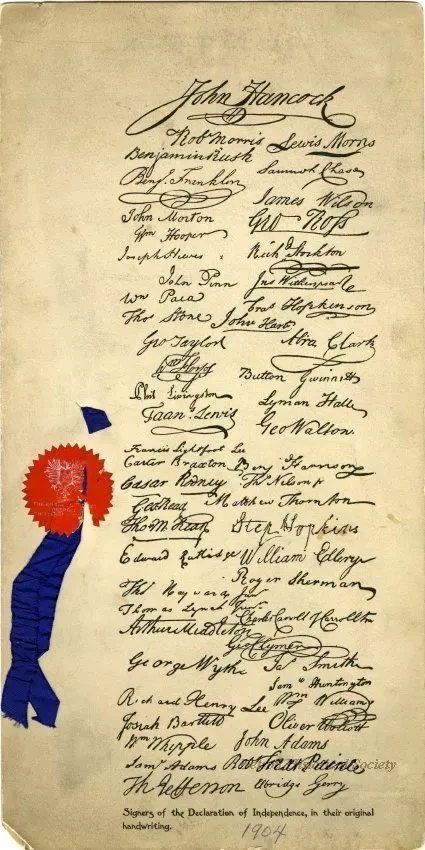 John Hancock
Rob^t Morris Lewis Morris
Benjamin Rush Samuel Chase
Benj. Franklin James Wilson
John Morton Geo Ross
Wm Hooper Rich^d Stockton
Joseph Hewes Jn^o Witherspoon
John Penn Fra^s Hopkinson
Wm Paca John Hart
Tho^s Stone Abra Clark
Geo Taylor
W^m Floyd Button Gwinnett
Phil Livingston Lyman Hall
Fran^s Lewis Geo Walton.
Francis Lightfoot Lee
Carter Braxton Benj Harrison
Caesar Rodney Th^s Nelson jr
Geo Read Matthew Thornton
Tho M Kean Step Hopkins
Edward Rutledge William Ellery
Roger Sherman
Tho^s Heyward Jun^r
Thomas Lynch Jun^r Charles Carroll of Carrollton
Arthur Middleton
Geo Clymer
George Wythe Ja^s Smith
Sam^l Huntington
Richard Henry Lee W^m Williams
Josiah Bartlett Oliver Wolcott
Wm Whipple John Adams
Sam^l Adams Rob^t Treat Paine
Th Jefferson Elbridge Gerry
Society
Signers of the Declaration of Independence, in their original
handwriting.
1904